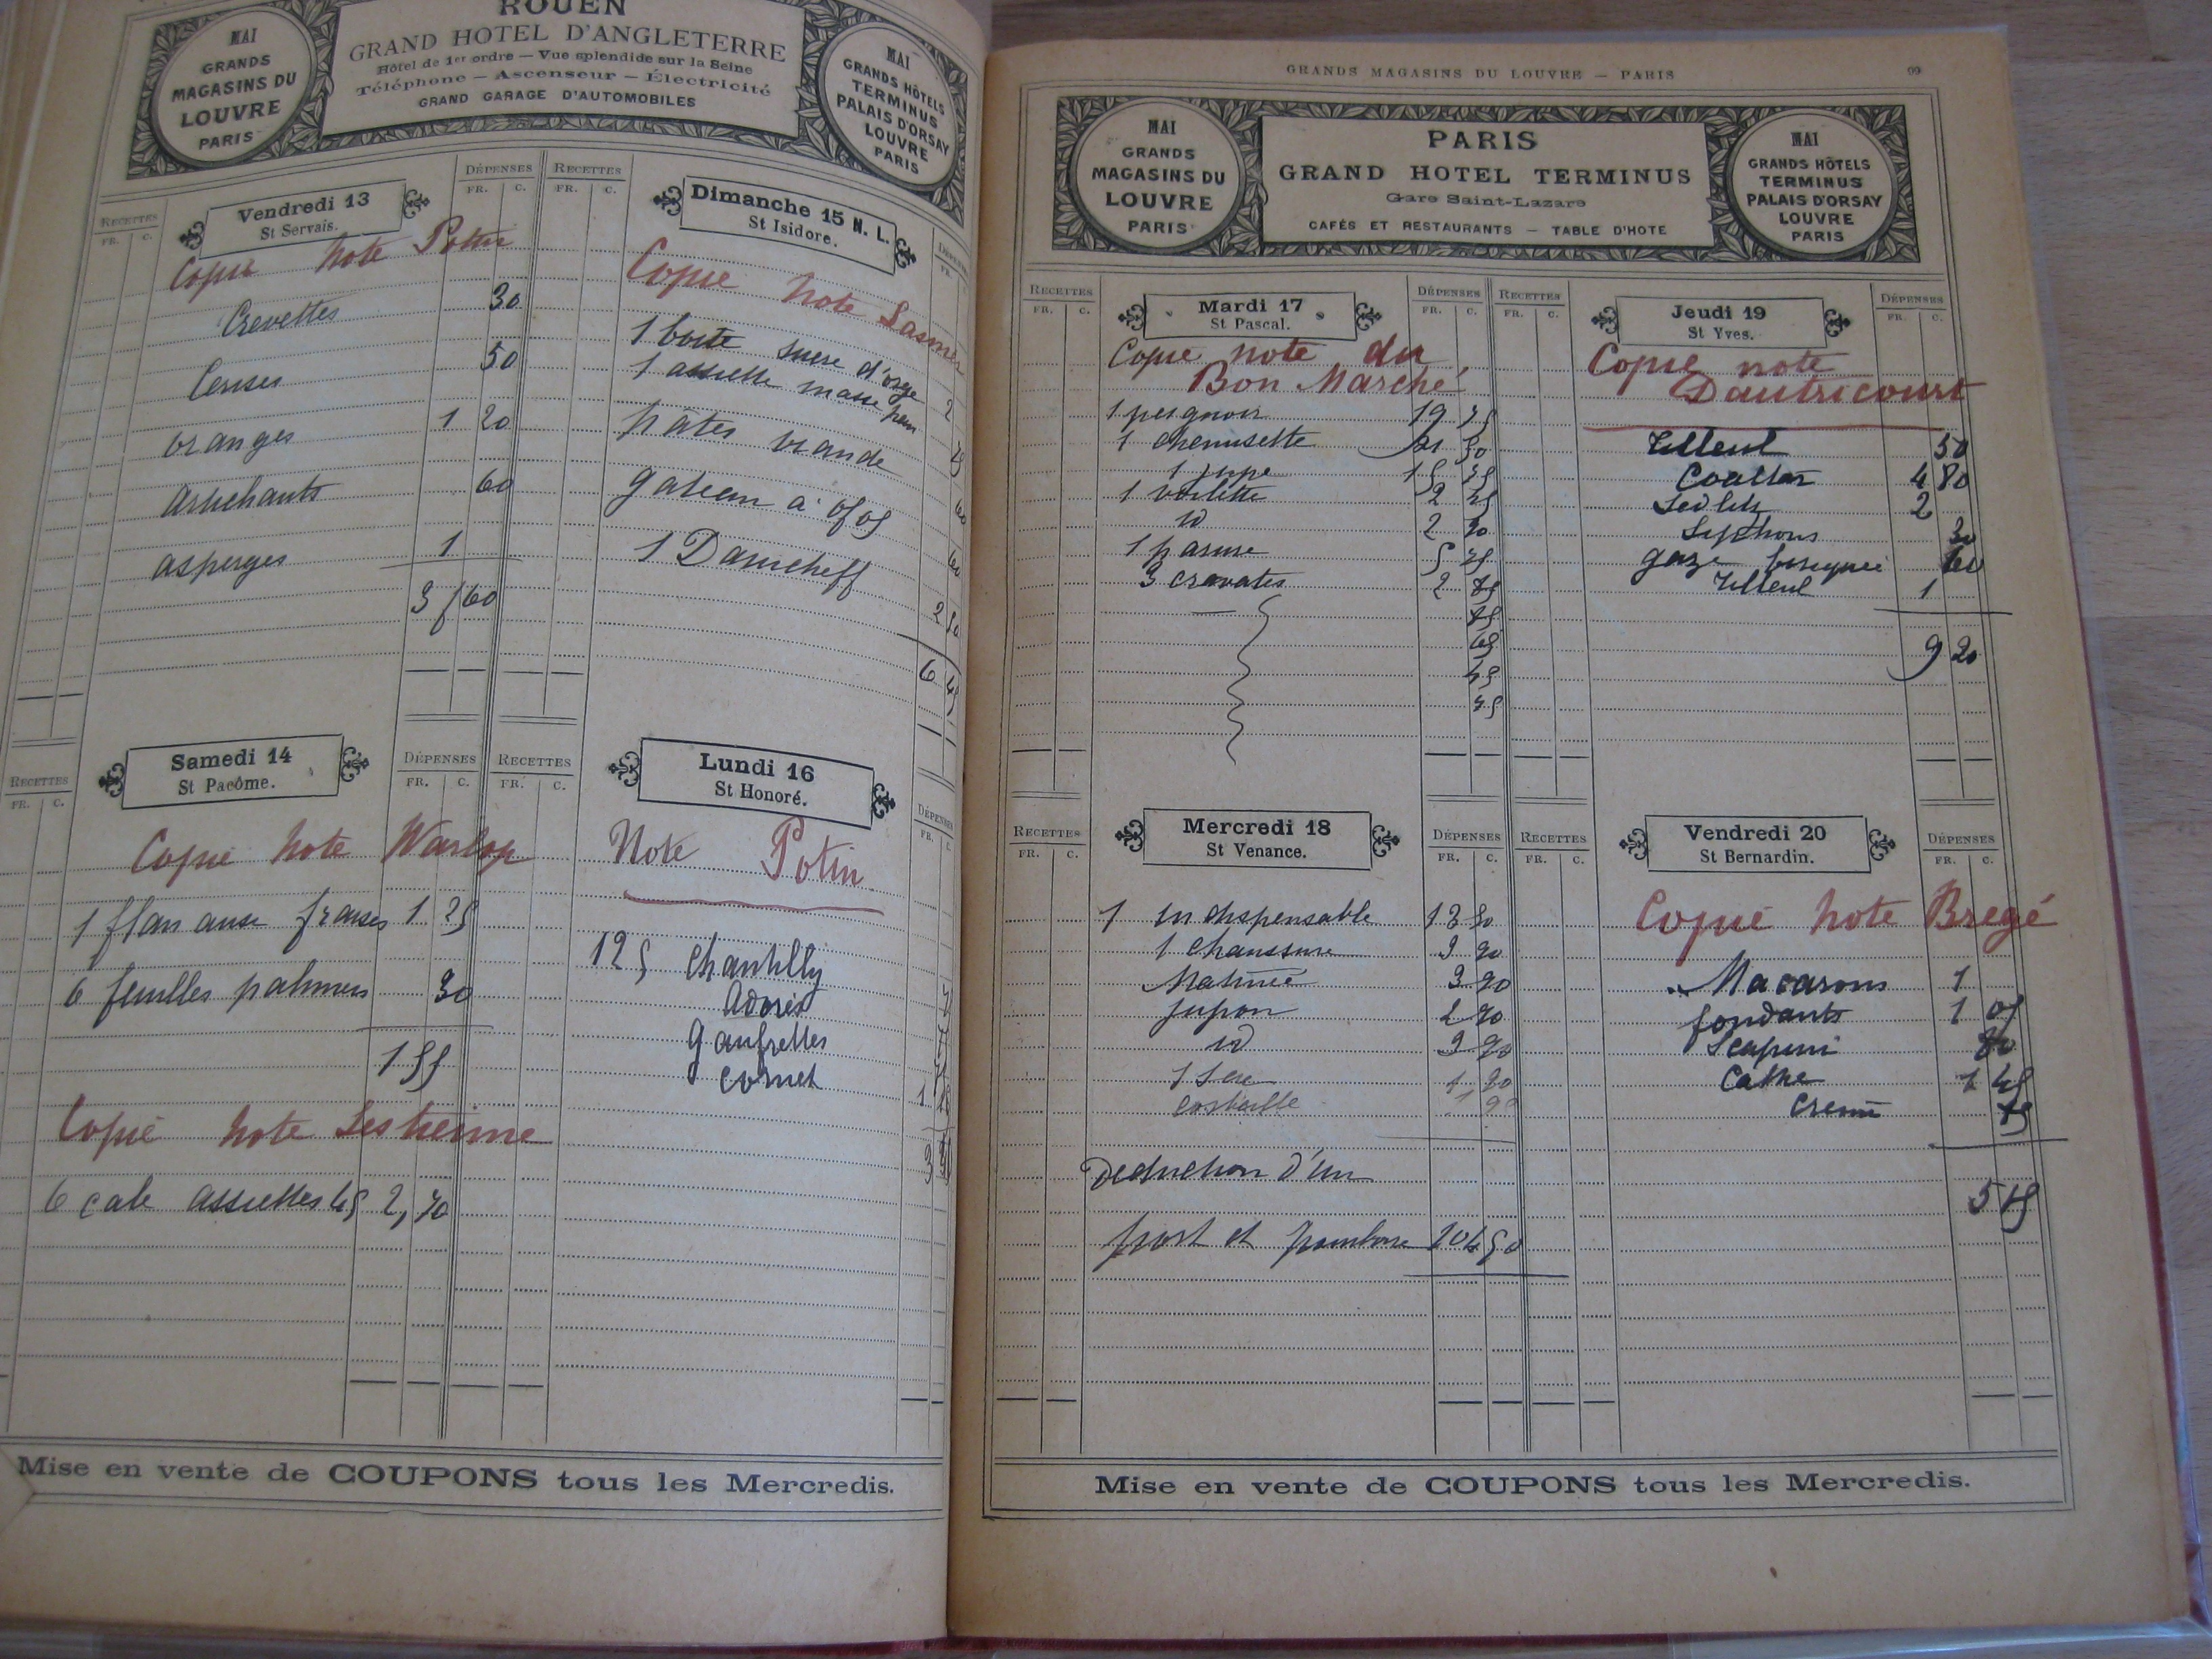 ROUEN
GRAND HOTEL D'ANGLETERRE
Hôtel de 1er ordre — Vue splendide sur la Seine
Téléphone — Ascenseur — Électricité
GRAND GARAGE D'AUTOMOBILES
MAI
GRANDS
MAGASINS DU
LOUVRE
PARIS
MAI
GRANDS HÔTELS
TERMINUS
PALAIS D'ORSAY
LOUVRE
PARIS
RECETTES
FR. C.
Vendredi 13
St Servais.
DÉPENSES
FR. C.
Copie note Potin
Crevettes 30
Cerises 50
oranges 1 20
artichauts 60
asperges 1
3/60
RECETTES
FR. C.
Samedi 14
St Pacôme.
DÉPENSES
FR. C.
Copie note Warlop
1 flan aux fraises 1 25
6 feuilles palmiers 30
1 55
Copie note Lestienne
6 cale assiettes 45 2,70
RECETTES
FR. C.
Dimanche 15 N. L.
St Isidore.
DÉPENSES
FR.
Copie note
1 boite sucre d'orge 2
1 assiette masse pain
pates viande 60
gateau à 0f05 60
1 Danicheff 2 50
6 45
RECETTES
FR. C.
Lundi 16
St Honoré.
DÉPENSES
FR.
Note Potin
125 Chantilly
Adorés
gaufrettes
cornet 1
3
Mise en vente de COUPONS tous les Mercredis.
GRANDS MAGASINS DU LOUVRE — PARIS 99
MAI
GRANDS
MAGASINS DU
LOUVRE
PARIS
PARIS
GRAND HOTEL TERMINUS
Gare Saint-Lazare
CAFÉS ET RESTAURANTS — TABLE D'HOTE
MAI
GRANDS HÔTELS
TERMINUS
PALAIS D'ORSAY
LOUVRE
PARIS
RECETTES
FR. C.
Mardi 17
St Pascal.
DÉPENSES
FR. C.
Copie note du
Bon Marché
1 peignoir 19 75
1 chemisette 21 50
1 jupe 15 75
1 voilette 2 25
id 2 90
1 parure 5 75
3 cravates 2 85
75
65
45
75
RECETTES
FR. C.
Mercredi 18
St Venance.
DÉPENSES
FR. C.
1 indispensable 13 50
1 chaussure 3 90
Matinée 3 90
jupon 2 90
id 3 90
1 90
corbeille 1 90
Déduction d'un
port et pourboire 104 50
RECETTES
FR. C.
Jeudi 19
St Yves.
DÉPENSES
FR. C.
Copie note
Dautricourt
Tilleul 50
Coaltar 4 80
Sedlitz 2
Syphons 30
gaze boriquée 60
Tilleul 1
9 20
RECETTES
FR. C.
Vendredi 20
St Bernardin.
DÉPENSES
FR. C.
Copie note Bregé
Macarons 1
fondants 1 05
1 45
creme 75
5 15
Mise en vente de COUPONS tous les Mercredis.